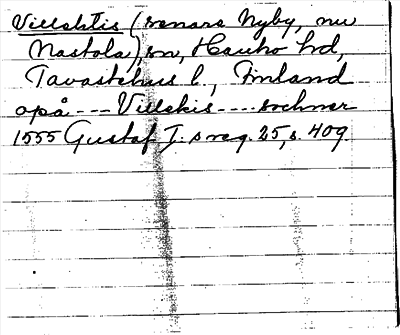 Villähtis (senare Nyby, nu
Nastola), sn, Hauho hd,
Tavastehus l., Finland
opå --- Villskis ---- sochner
1555 Gustaf I:s reg. 25, s. 409.